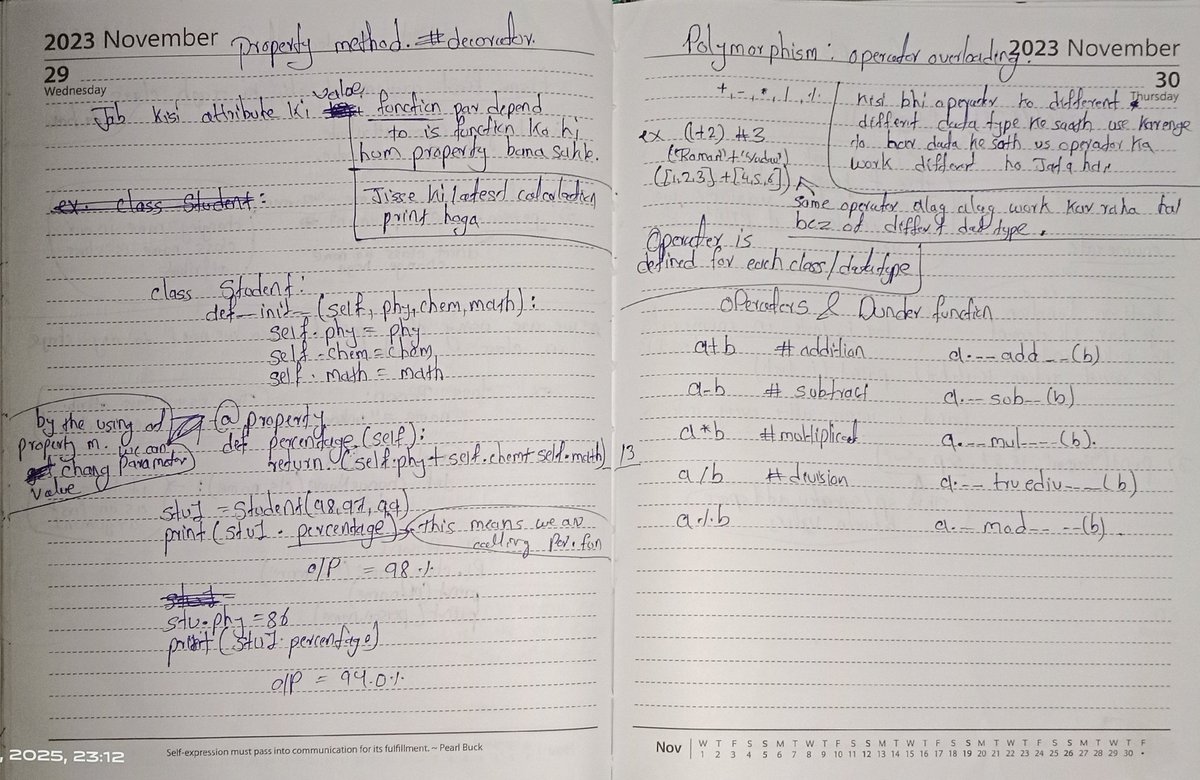 2023 November
Property method. # decorator.
29
Wednesday
Jab kisi attribute ki value function par depend
to is function ka hi
hum property bana sakte.
Jisse ki latesd calculation
print hoga
ex. class Student:
class Student:
def __init__(self, phy, chem, math):
self.phy = phy
self.chem = chem
self.math = math
@property
def percentage (self):
return (self.phy + self.chem + self.math) / 3
by the using of
property m. we can
chang Parameter
value
stu1 = Student(98,97,99)
print (stu1. percentage)
this means we are
calling Per. fun
o/p = 98 %
stu.phy = 86
print (stu1. percentage)
o/p = 94.0%
2025, 23:12
Self-expression must pass into communication for its fulfillment. ~ Pearl Buck
Polymorphism : operator overloading.
2023 November
30
Thursday
+, -, *, /, %
kisi bhi operator ko different
differnt data type ke saath use karenge
to har data ke sath us operator ka
work different ho Jata hai
ex (1+2) #3
("Raman" + "Yadav")
([1,2,3] + [4,5,6])
same operator alag alag work kar raha hai
bcz of differnt data type.
Operator is
defined for each class/datatype
Operators & Dunder function
a+b # addition a.__add__(b)
a-b # subtract a.__sub__(b)
a*b # multiplied a.__mul__(b).
a/b # division a.__truediv__(b)
a%b a.__mod__(b).
Nov
W T F S S M T W T F S S M T W T F S S M T W T F S S M T W T F
1 2 3 4 5 6 7 8 9 10 11 12 13 14 15 16 17 18 19 20 21 22 23 24 25 26 27 28 29 30 •